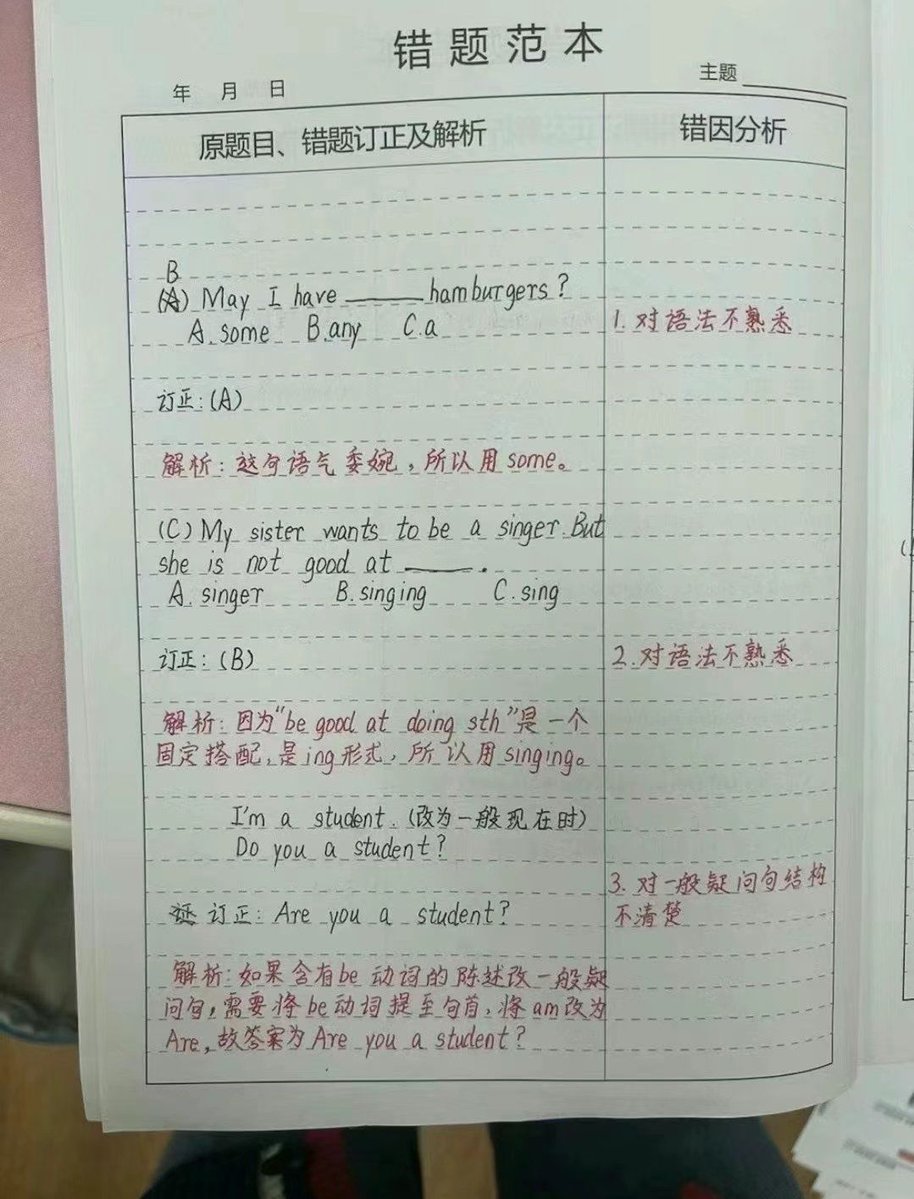 错题范本
年 月 日
主题
原题目、错题订正及解析
错因分析
B
(A) May I have ______ hamburgers?
A. some B. any C. a
1. 对语法不熟悉
订正: (A)
解析: 这句语气委婉, 所以用 some。
(C) My sister wants to be a singer But
she is not good at ______.
A. singer B. singing C. sing
订正: (B)
2. 对语法不熟悉
解析: 因为“be good at doing sth”是一个
固定搭配, 是 ing 形式, 所以用 singing。
I'm a student. (改为一般现在时)
Do you a student?
3. 对一般疑问句结构
不清楚
订正: Are you a student?
解析: 如果含有 be 动词的陈述改一般疑
问句, 需要将 be 动词提至句首, 将 am 改为
Are, 故答案为 Are you a student?